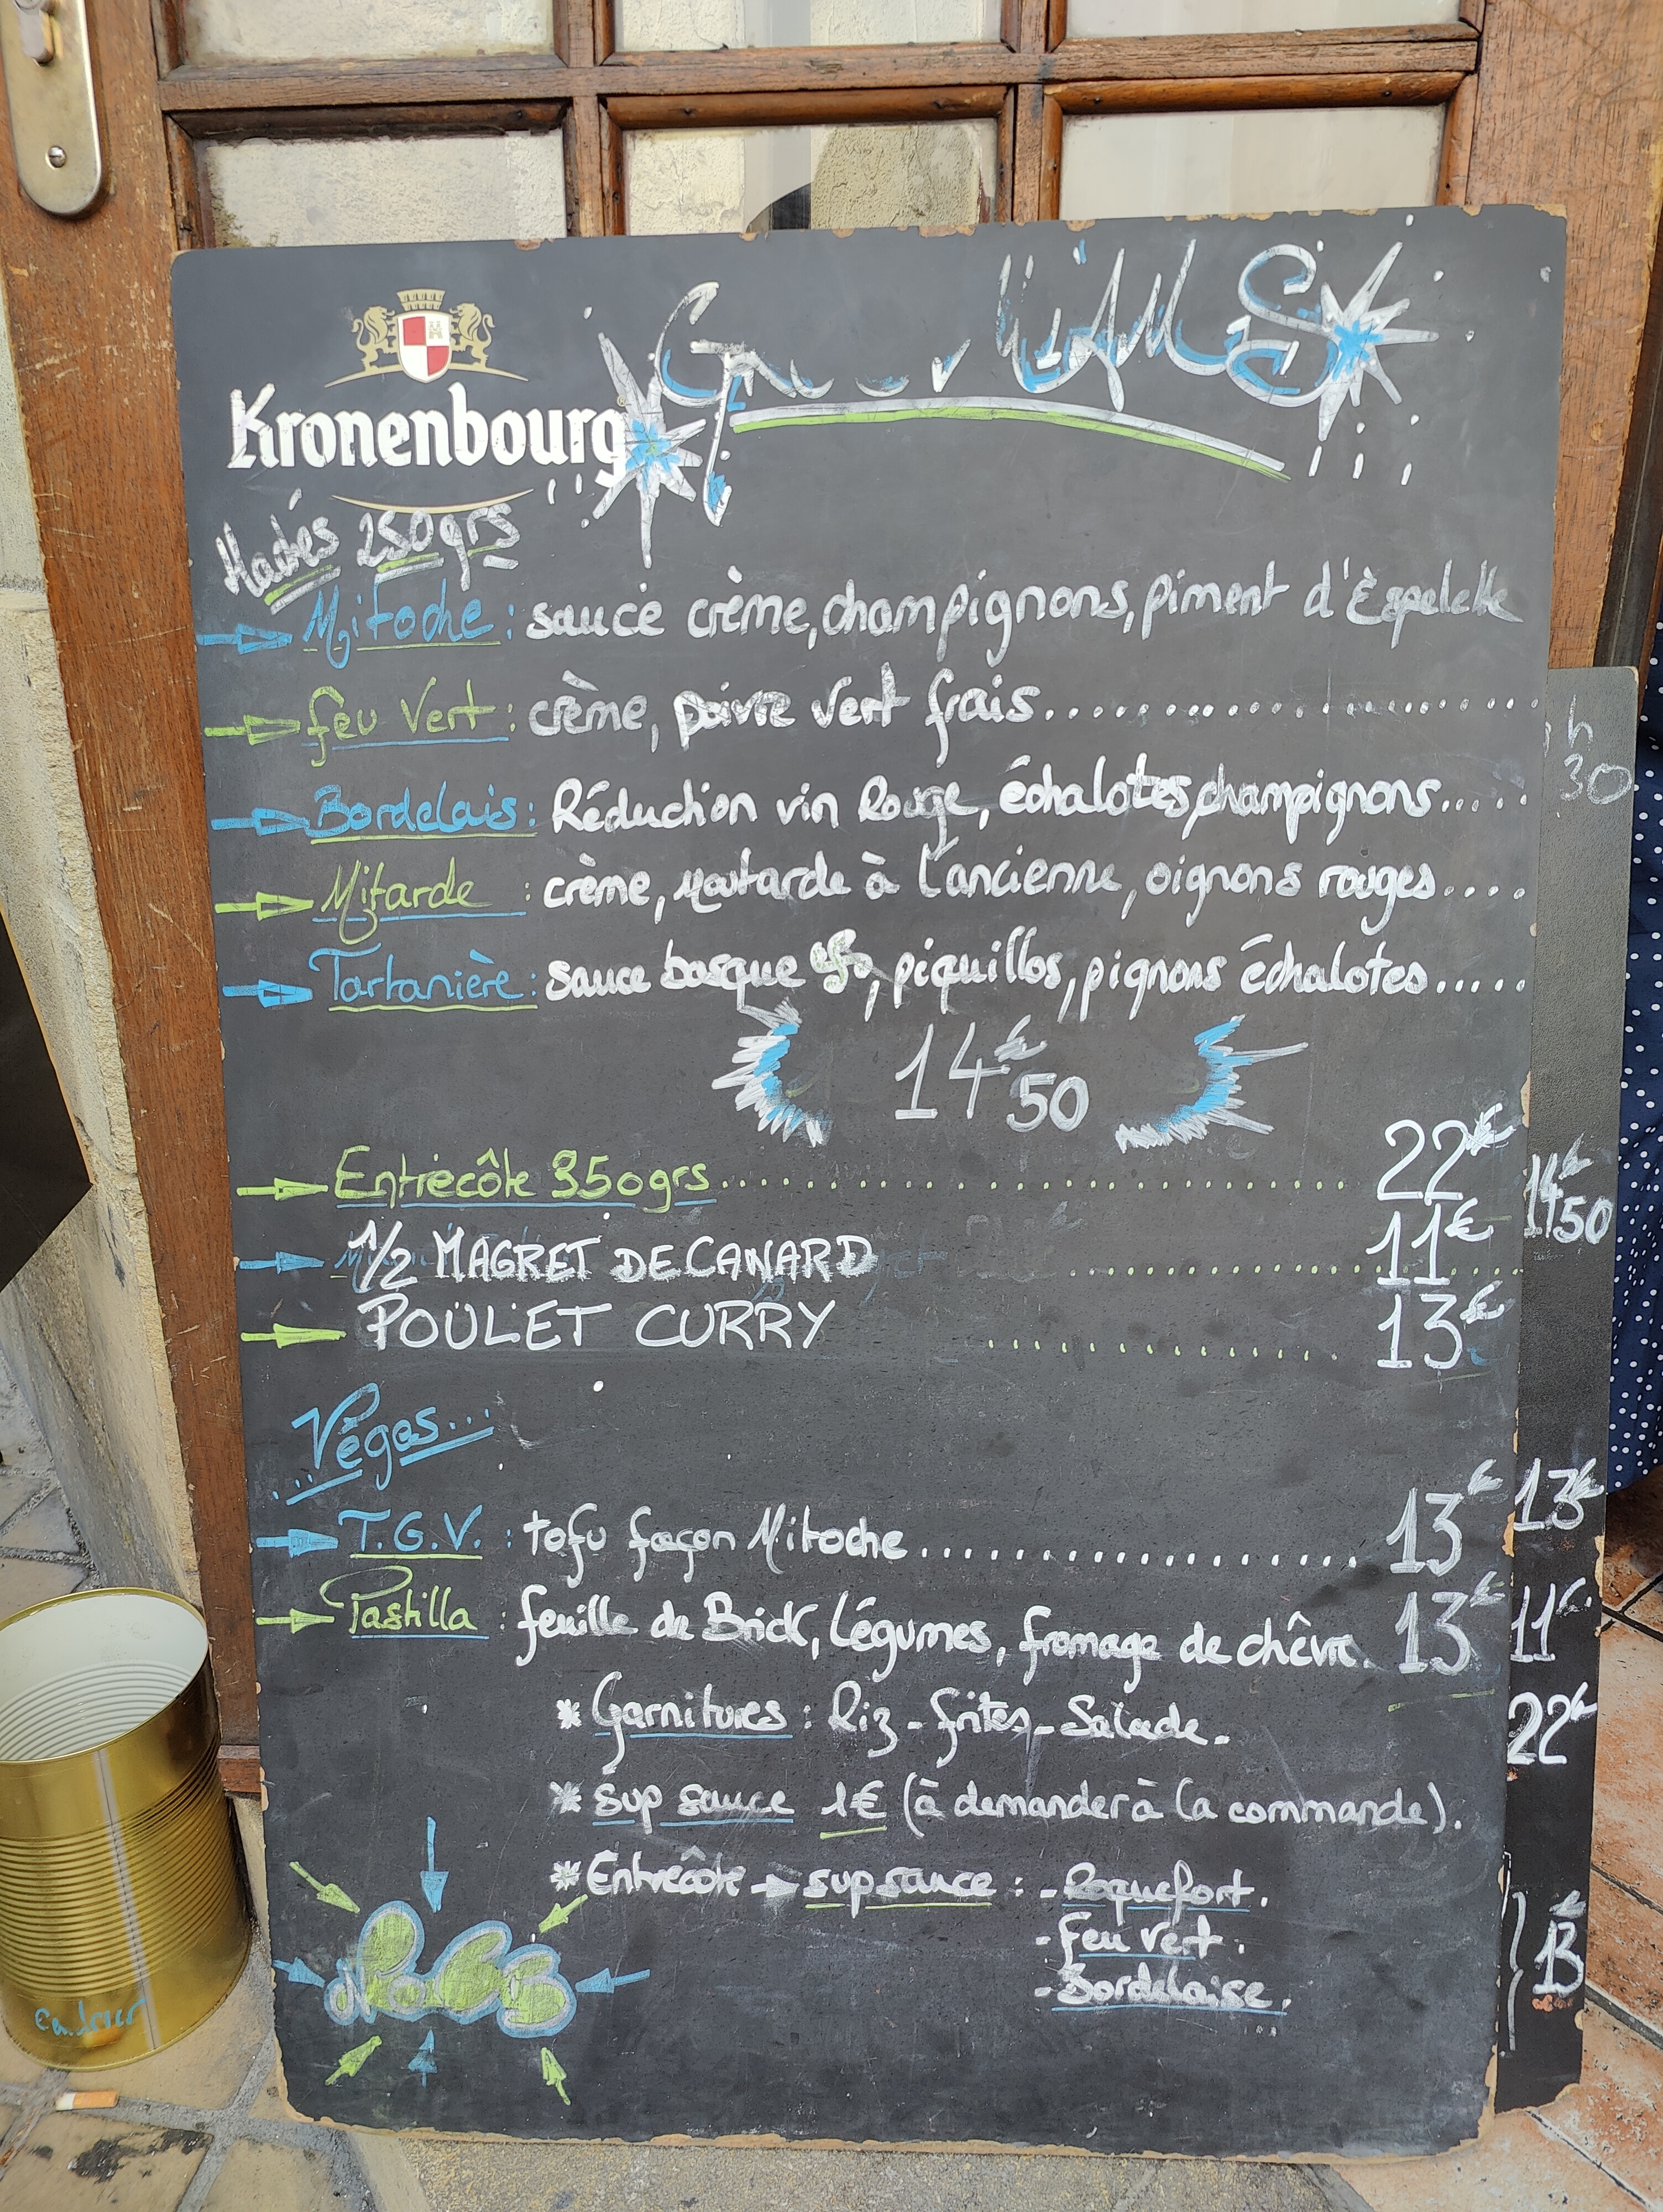 Kronenbourg
MiAMS
Hachés 250grs
Mitoche : sauce crème, champignons, piment d'Èspelette
feu Vert : crème, poivre vert frais
Bordelais : Réduction vin Rouge, échalotes, champignons.....
Mitarde : crème, Moutarde à l'ancienne, oignons rouges....
Tartanière : sauce basque, piquillos, pignons échalotes.....
14€50
Entrecôte 350grs 22€
1/2 MAGRET DE CANARD 11€
POULET CURRY 13€
Végas...
T.G.V. : tofu façon Mitoche 13€
Pastilla : feuille de Brick, légumes, fromage de chêvre. 13€
* Garnitures : Riz - frites - Salade.
* sup sauce 1€ (à demander à la commande).
* Entrecôte → sup sauce : - Roquefort.
- Feu Vert.
- Bordelaise.
h
30
14€50
13€
11€
22€
13€